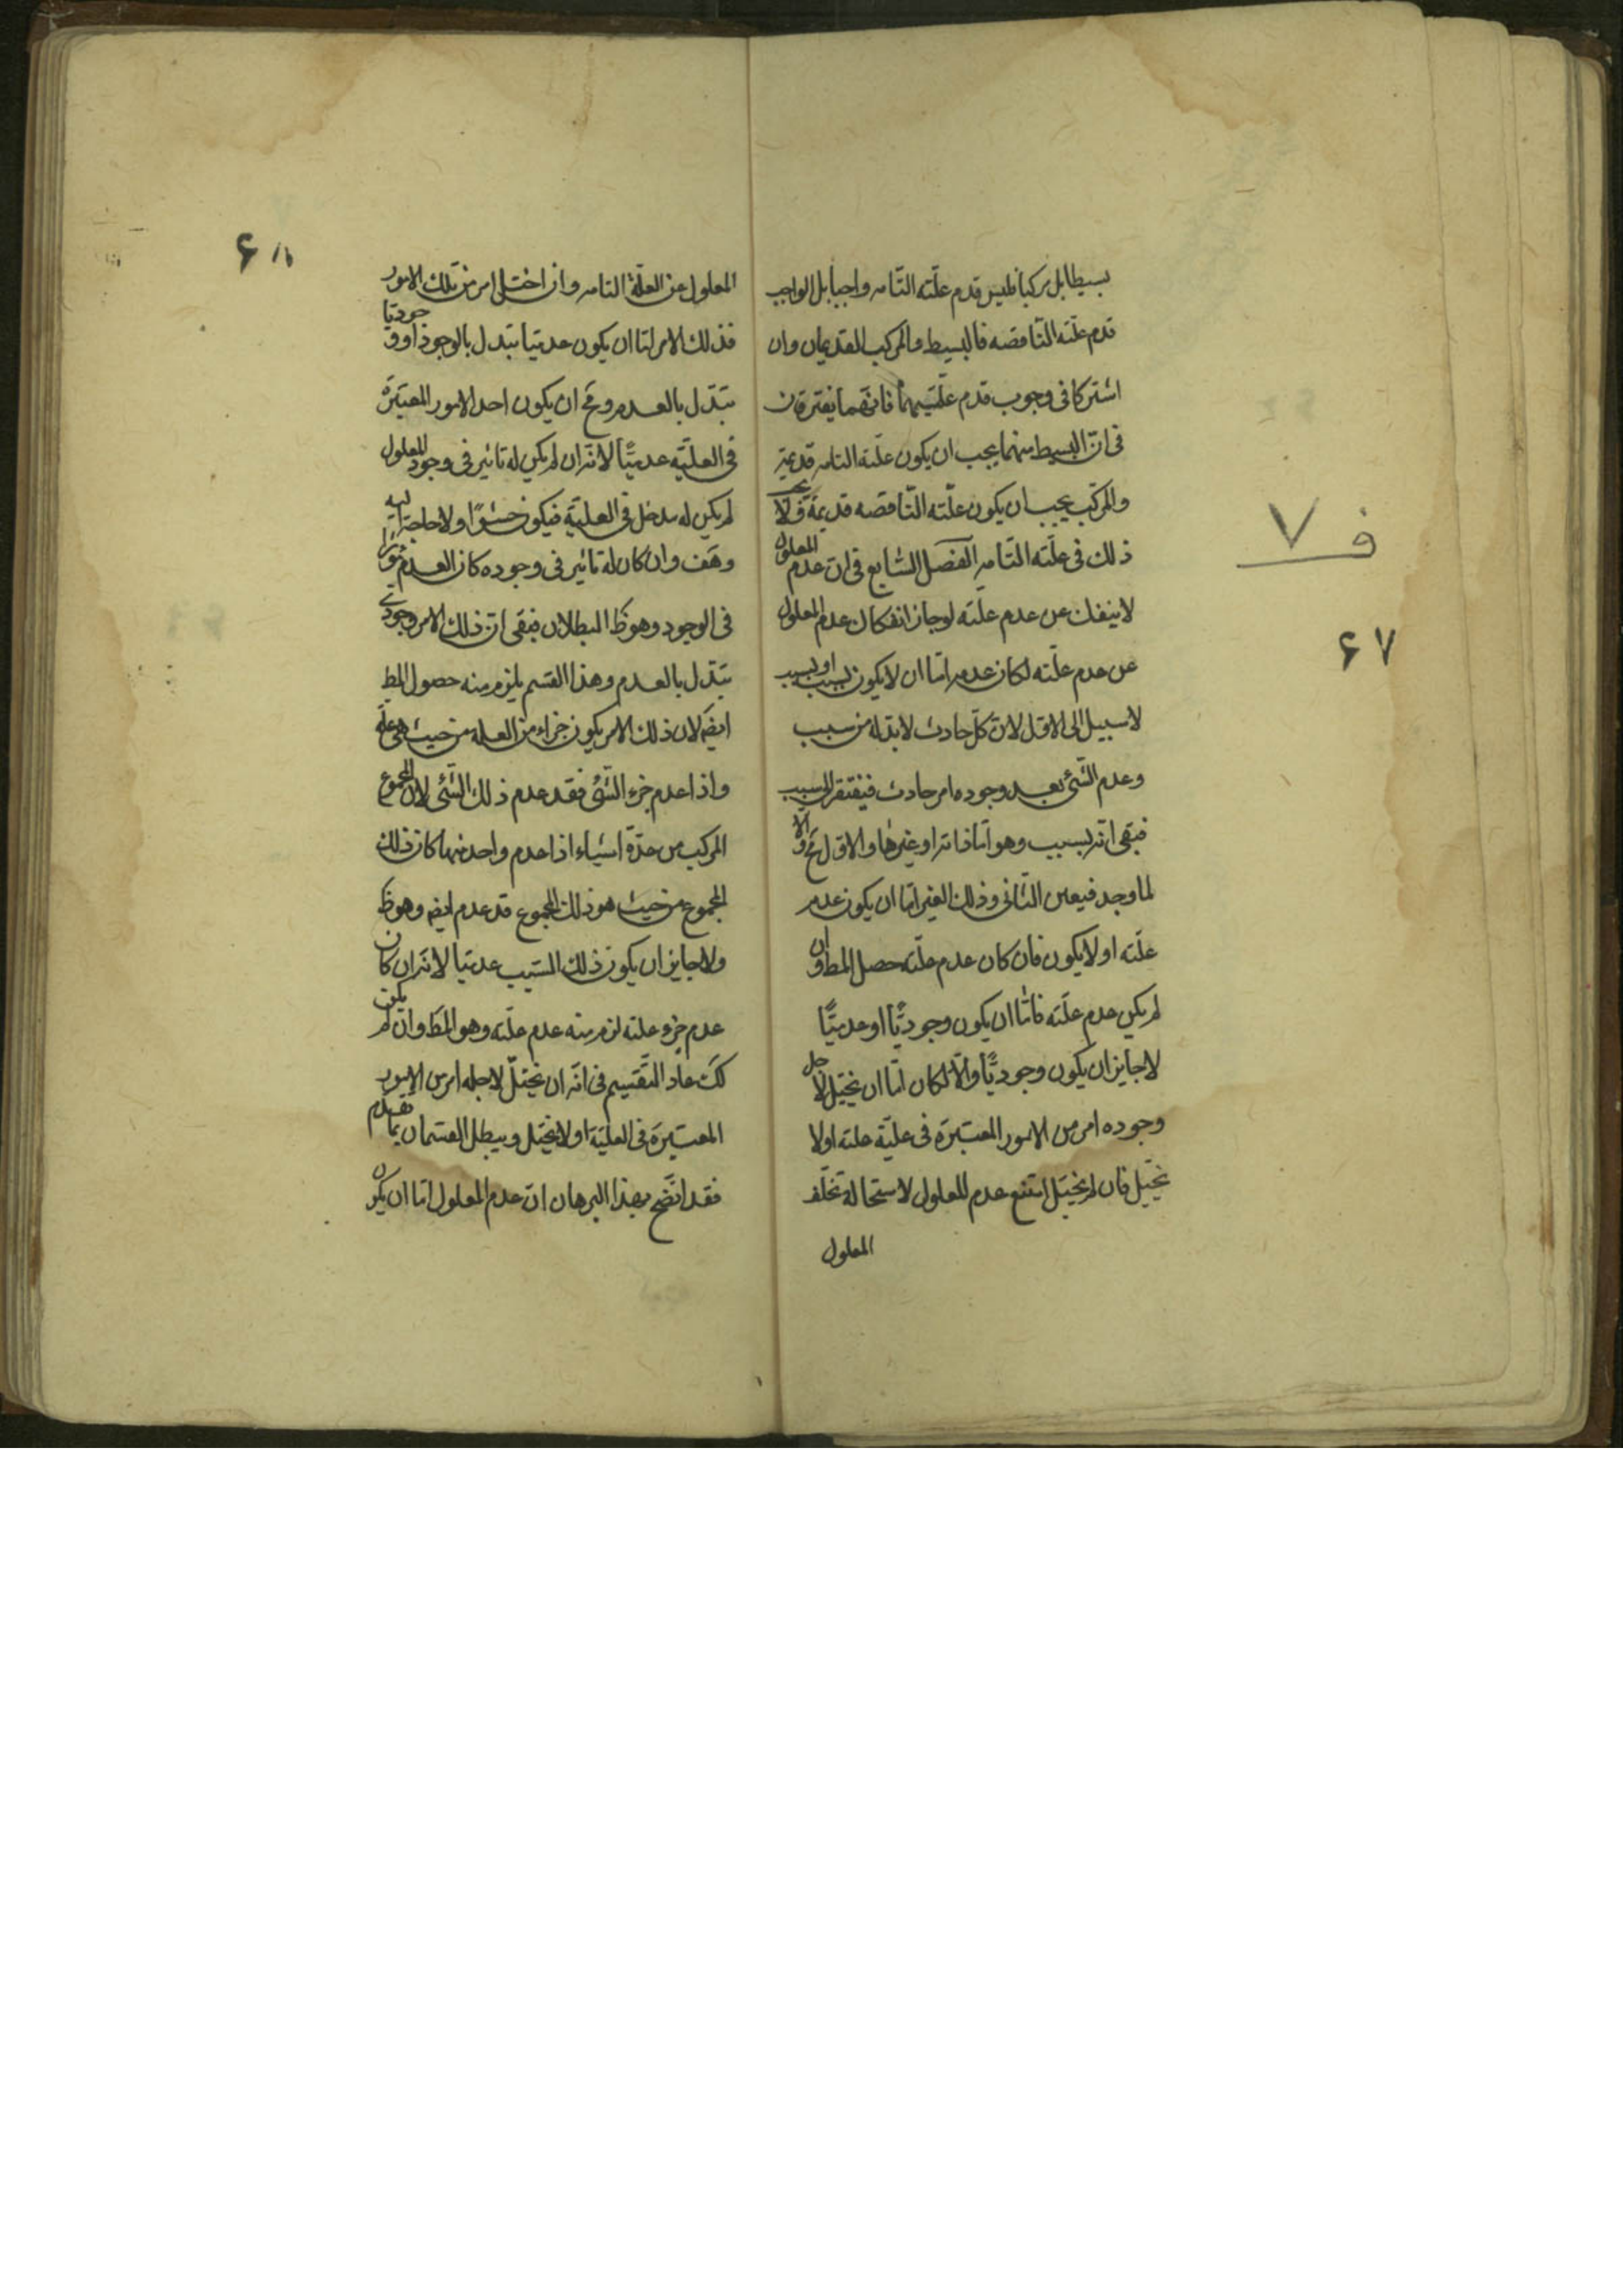 بسيطا بل مركبا فليس قدم علّته التّامه واجبا بل الواجب
قدم علّته النّاقصه فالبسيط والمركب القديمان وان
اشتركا فى وجوب قدم علّتيهما فانهما يفترقان
فى انّ البسيط منهما يجب ان يكون علّته التامه قديمة
والمركّب يجب ان يكون علّته النّاقصه قديمة ولا يجب
ذلك فى علّته التّامه الفصل السّابع فى انّ عدم المعلول
لا ينفك عن عدم علّته لو جاز انفكاك عدم المعلول
عن عدم علّته لكان عدمه امّا ان لا يكون لسبب او لسبب
لا سبيل الى الاوّل لانّ كلّ حادث لا بدّ له من سبب
وعدم الشّئ بعد وجوده امر حادث فيفتقر الى سبب
فبقى انّه لسبب وهو امّا ذاته او غيرها والاوّل مح والّا
لما وجد فيعين الثّانى وذلك الغير امّا ان يكون عدم
علّته او لا يكون فان كان عدم علّته حصل المط وان
لم يكن عدم علّته فامّا ان يكون وجوديّا او عدميّا
لا جايز ان يكون وجوديّا والّا لكان امّا ان يختل لاجل
وجوده امر من الامور المعتبرة فى عليّة علته او لا
يختل فان لم يختل امتنع عدم المعلول لاستحالة تخلّف
المعلول
ف ٧
٦٧
٦٨
المعلول عن العلّة التامه وان اختل امر من تلك الامور
فذلك الامر امّا ان يكون عدميّا تبدل بالوجود او وجوديّا
تبدّل بالعدم ومح ان يكون احد الامور المعتبرة
فى العليّه عدميّا لانّه ان لم يكن له تاثير فى وجود المعلول
لم يكن له مدخل فى العليّة فيكون حشوًا ولا حاجة اليه
وهف وان كان له تاثير فى وجوده كان العدم مؤثرا
فى الوجود وهو ظ البطلان فبقى انّ ذلك الامر وجودى
تبدّل بالعدم وهذا القسم يلزم منه حصول المط
ايضا لان ذلك الامر يكون جزء من العلة من حيث هى علة
واذا عدم جزء الشّئ فقد عدم ذلك الشّئ لان المجموع
المركب من عدّة اشياء اذا عدم واحد منها كان ذلك
المجموع من حيث هو ذلك المجموع قد عدم ايضا وهو ظ
ولا جايز ان يكون ذلك السّبب عدميا لانّه ان كان
عدم جزء علته لزم منه عدم علّته وهو المط وان لم يكن
كك عاد التقسيم فى انّه ان يختلّ لاجله امر من الامور
المعتبرة فى العليّة او لا يختل ويبطل القسمان بما تقدم
فقد اتضّح بهذا البرهان انّ عدم المعلول امّا ان يكون